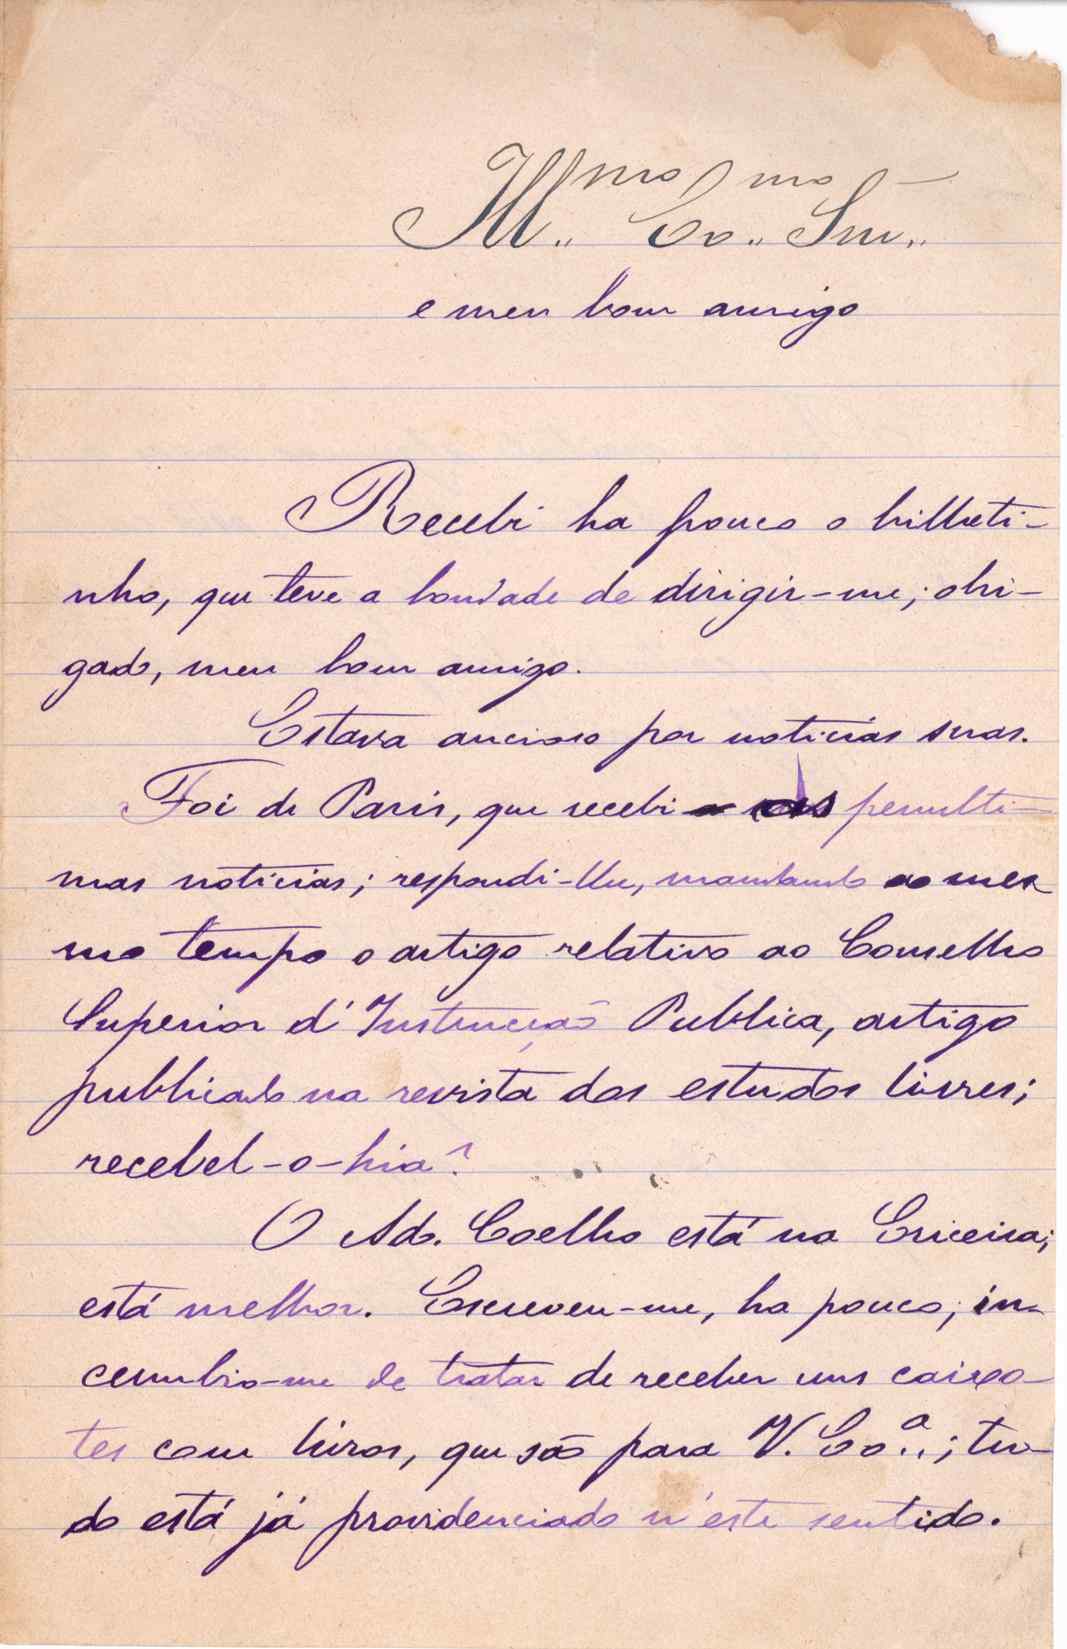 Ill.mo Ex.mo Snr.
e meu bom amigo
Recebi ha pouco o bilheti-
nho, que teve a bondade de dirigir-me; obri-
gado, meu bom amigo.
Estava ancioso por noticias suas.
Foi de Paris, que recebi as penulti-
mas noticias; respondi-lhe, mandando ao mes
mo tempo o artigo relativo ao Conselho
Superior d'Instrucção Publica, artigo
publicado na revista dos estudos livres;
recebel-o-hia?
O Ad. Coelho está na Ericeira;
está melhor. Escreveu-me, ha pouco; in-
cumbio-me de tratar de receber uns caixo-
tes com livros, que são para V. Ex.a; tu-
do está já providenciado n'este sentido.